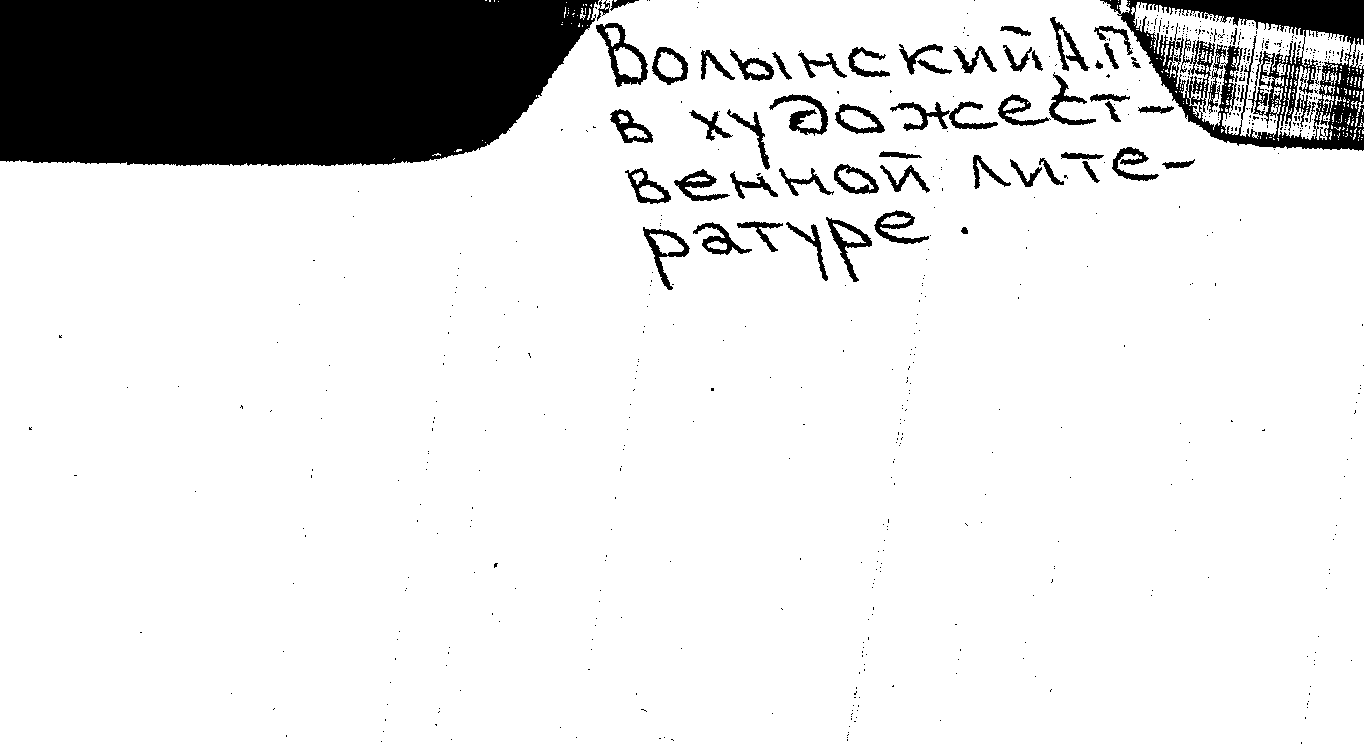 Волынский А.П
в художест-
венной лите-
ратуре.